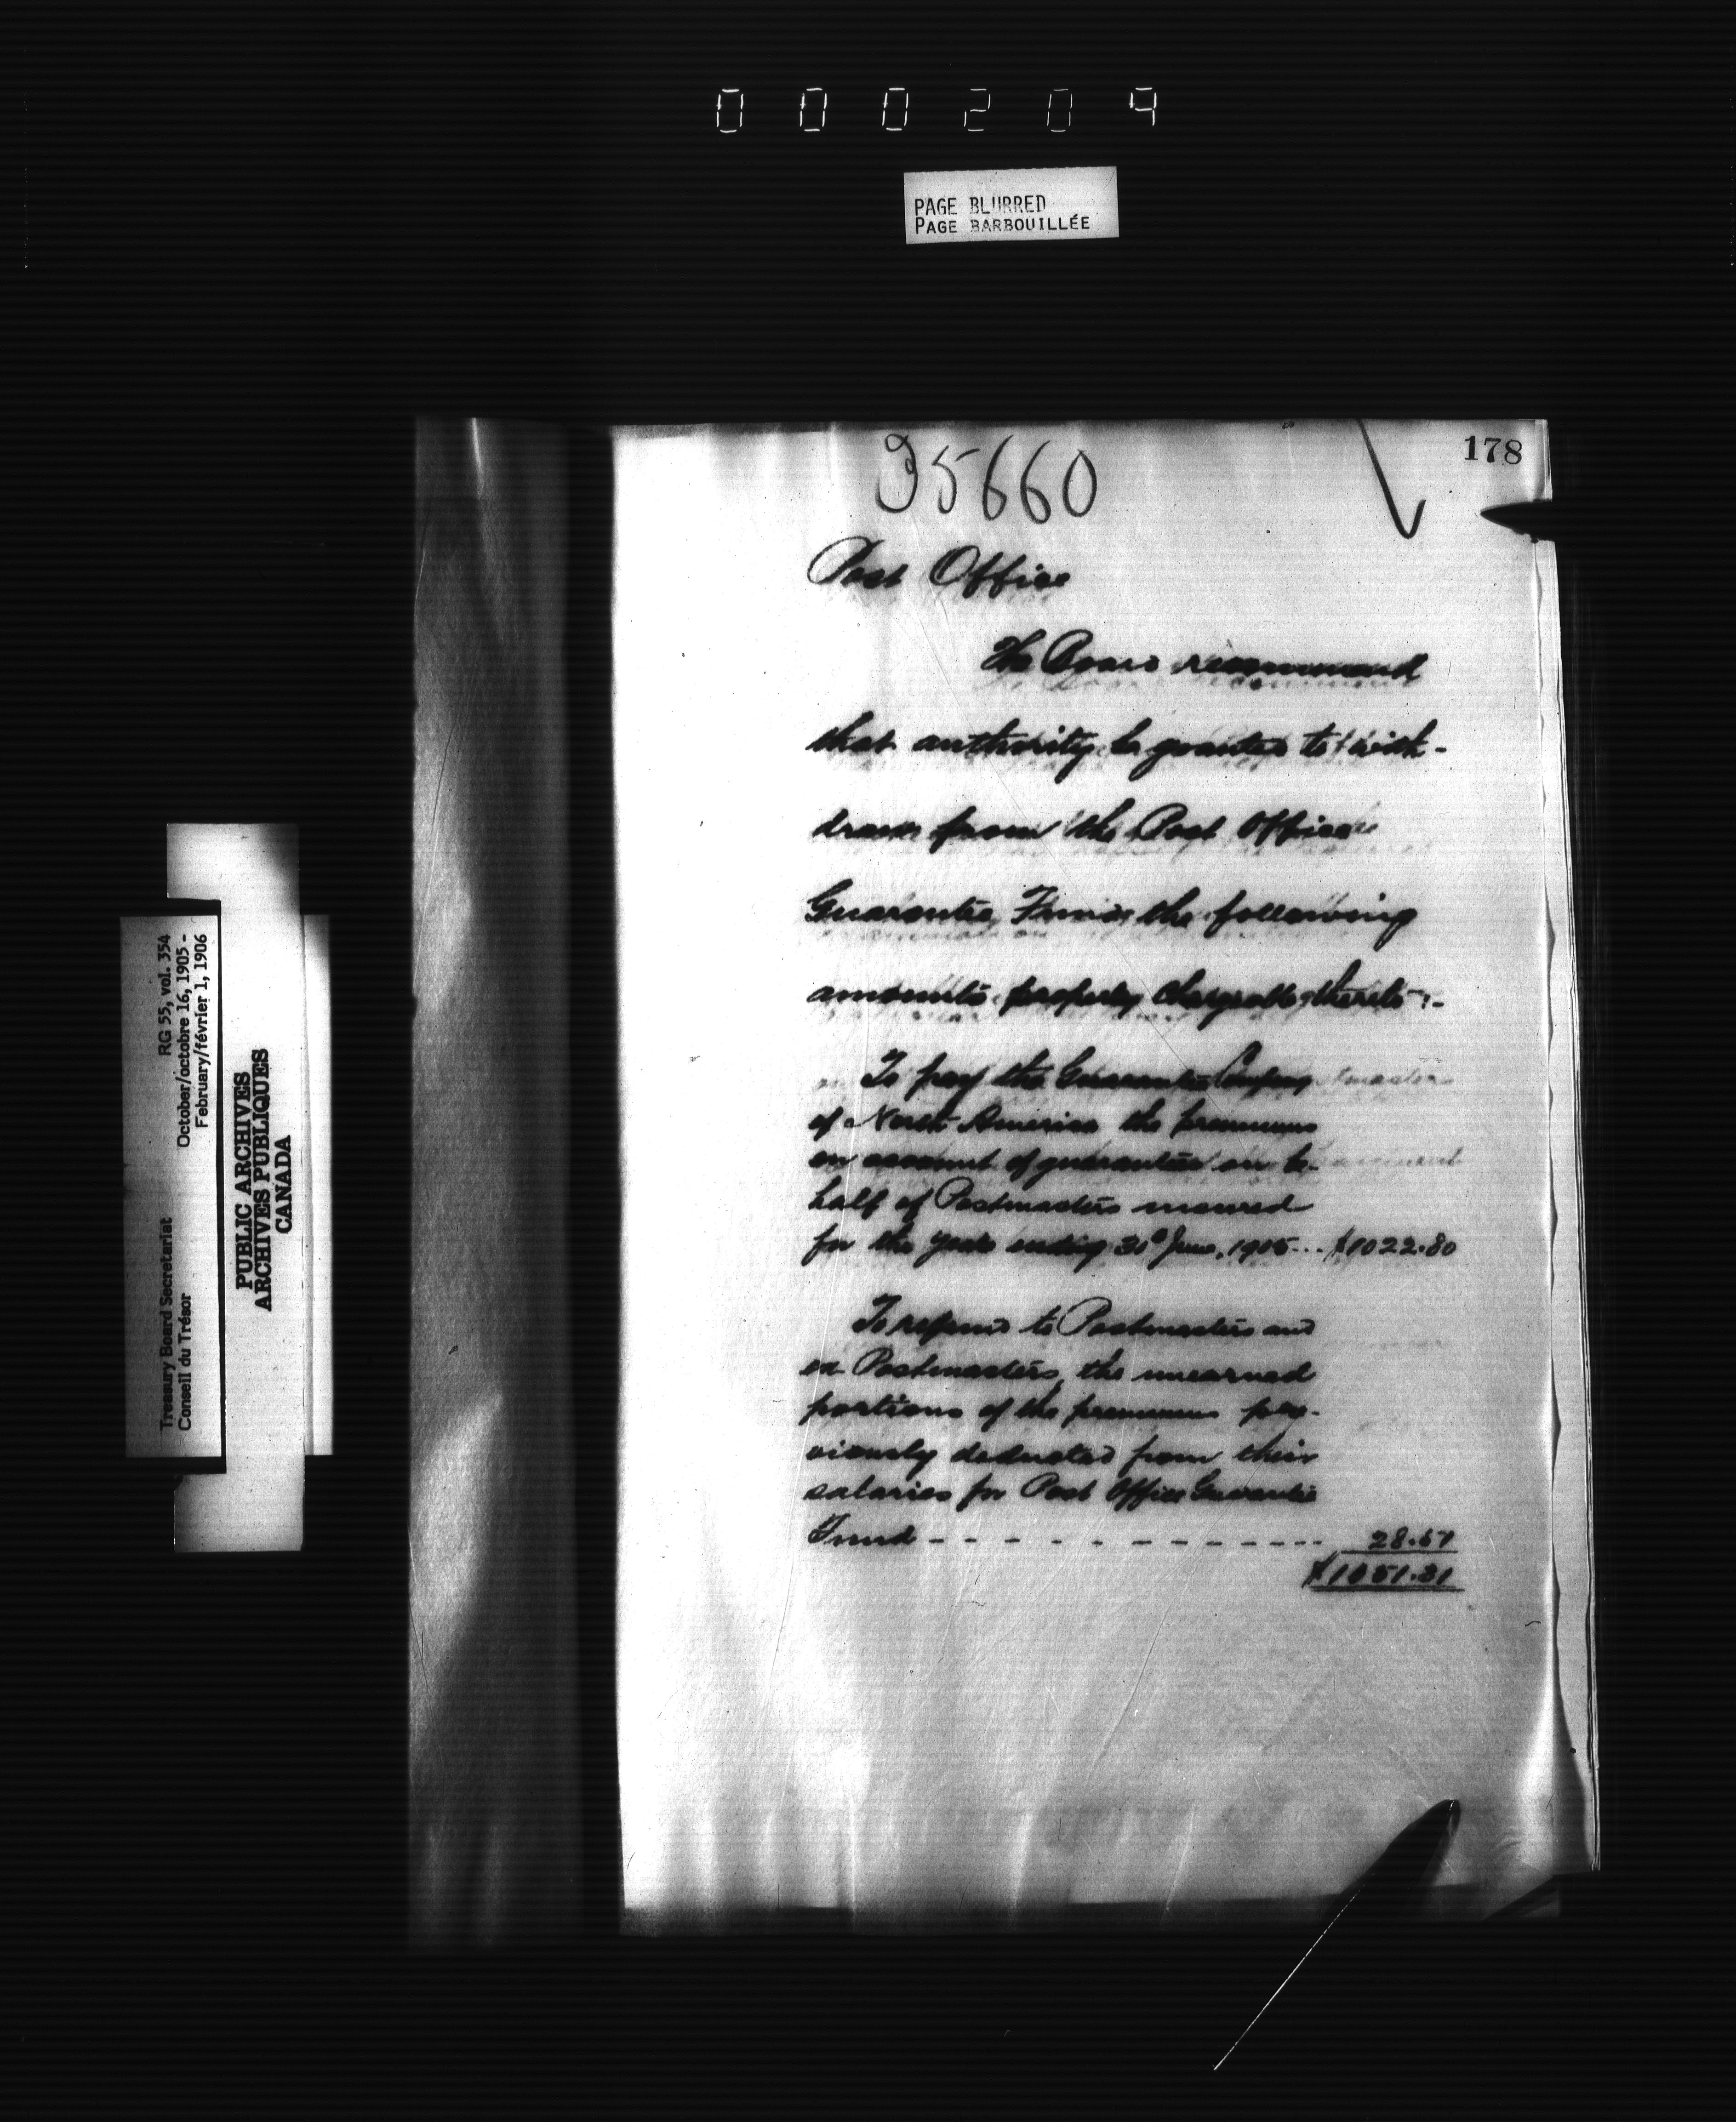 000204
PAGE BLURRED
PAGE BARBOUILLÉE
178
35660
Post Office
The Board recommend
that authority be granted to with-
draw from the Post Office
Guarantee Fund, the following
amounts properly chargeable thereto :-
To pay the Guarantee Company
of North America the premiums
on account of guarantees on be-
half of Postmasters insured
for the year ending 30th June, 1905... $1022.80
To refund to Postmasters and
ex-Postmasters, the unearned
portions of the premiums pre-
viously deducted from their
salaries for Post Office Guarantee
Fund - - - - - - - - - - - -
Treasury Board Secretariat RG 55, vol. 354
Conseil du Trésor October/octobre 16, 1905 -
February/février 1, 1906
PUBLIC ARCHIVES
ARCHIVES PUBLIQUES
CANADA